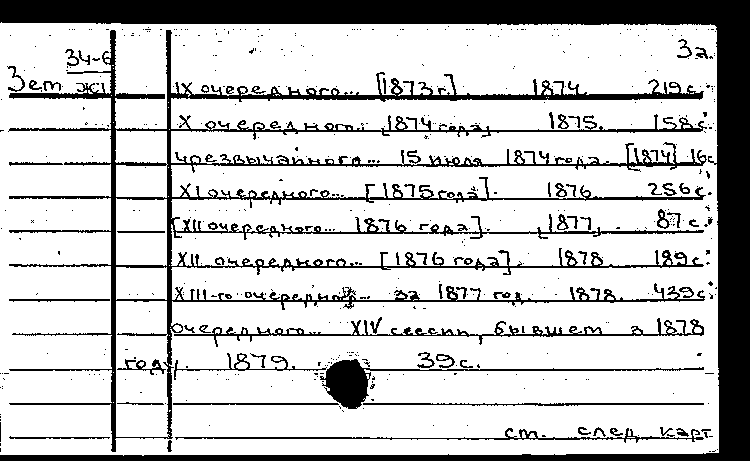 3а.
34-6
Зет Ж1
IX очередного... [1873 г.]. 1874. 219 с.
X очередного... [1874 года]. 1875. 158 с.
чрезвычайного... 15 июля 1874 года. [1874] 16 с.
XI очередного... [1875 года]. 1876. 256 с.
[XII очередного... 1876 года]. [1877]. 87 с.
XII очередного... [1876 года]. 1878. 189 с.
XIII-го очередного... за 1877 год. 1878. 439 с.
очередного... XIV сессии, бывшем в 1878
году. 1879. 39 с.
ст. след. карт